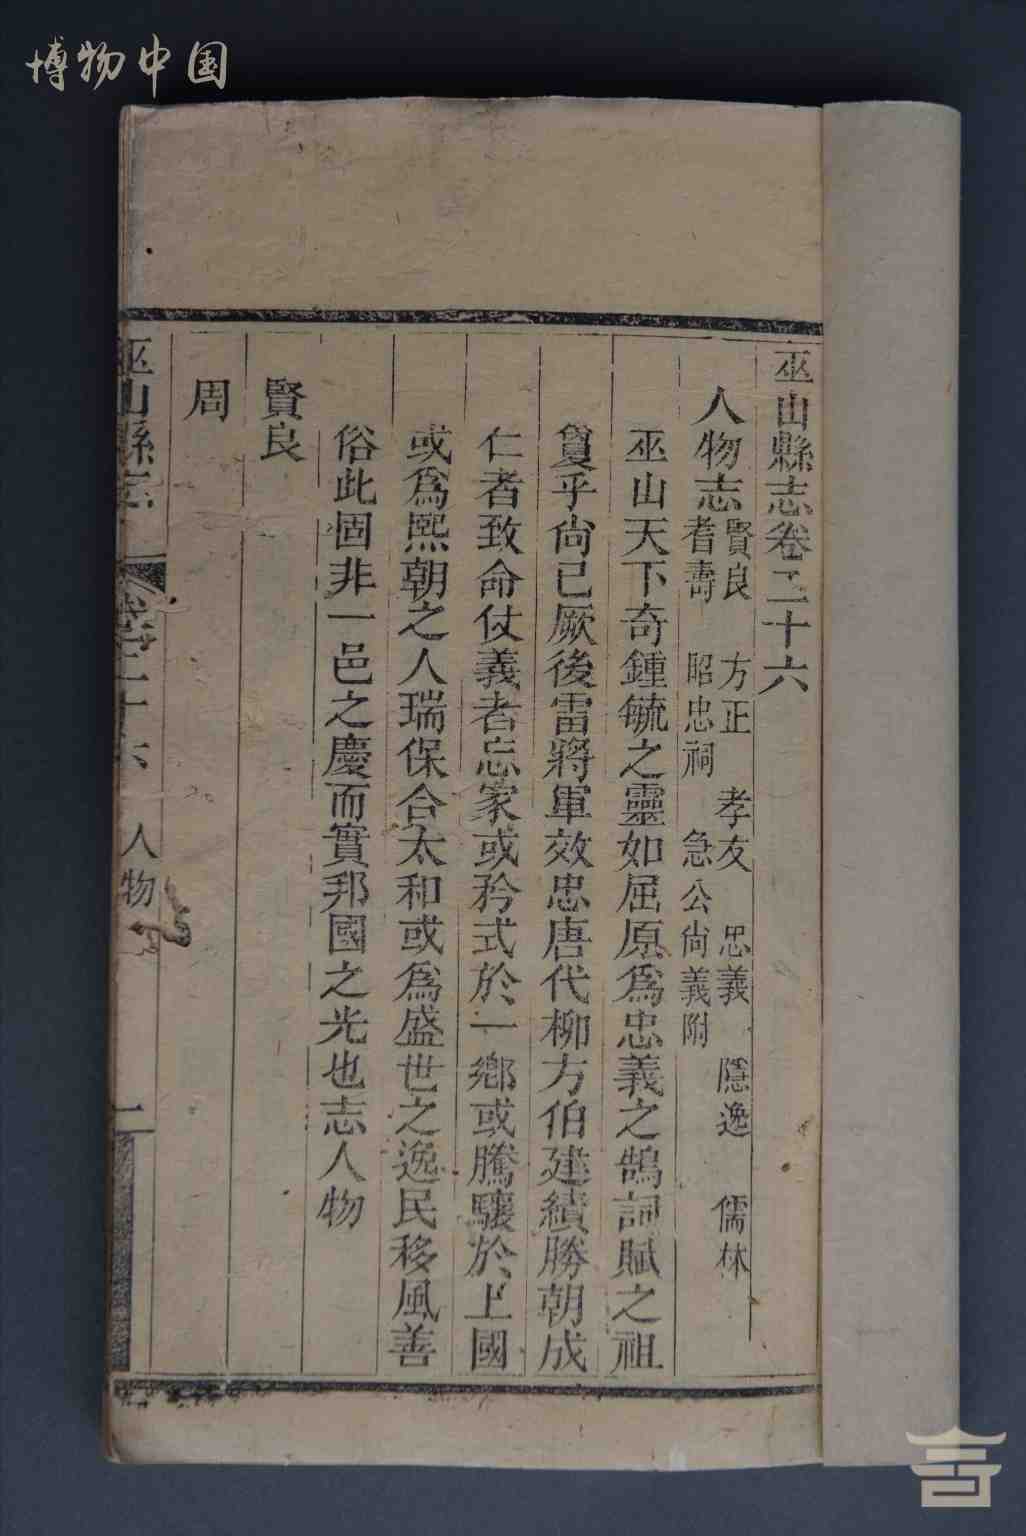 博物中国
巫山縣志卷二十六
人物志
賢良 方正 孝友 忠義 隱逸 儒林
耆壽 昭忠祠 急公尚義附
巫山天下奇鍾毓之靈如屈原爲忠義之鵠詞賦之祖
敻乎尙已厥後雷將軍效忠唐代柳方伯建績勝朝成
仁者致命仗義者忘家或矜式於一鄉或騰驤於上國
或爲熙朝之人瑞保合太和或爲盛世之逸民移風善
俗此固非一邑之慶而實邦國之光也志人物
賢良
周
巫山縣志 卷二十六 人物 一